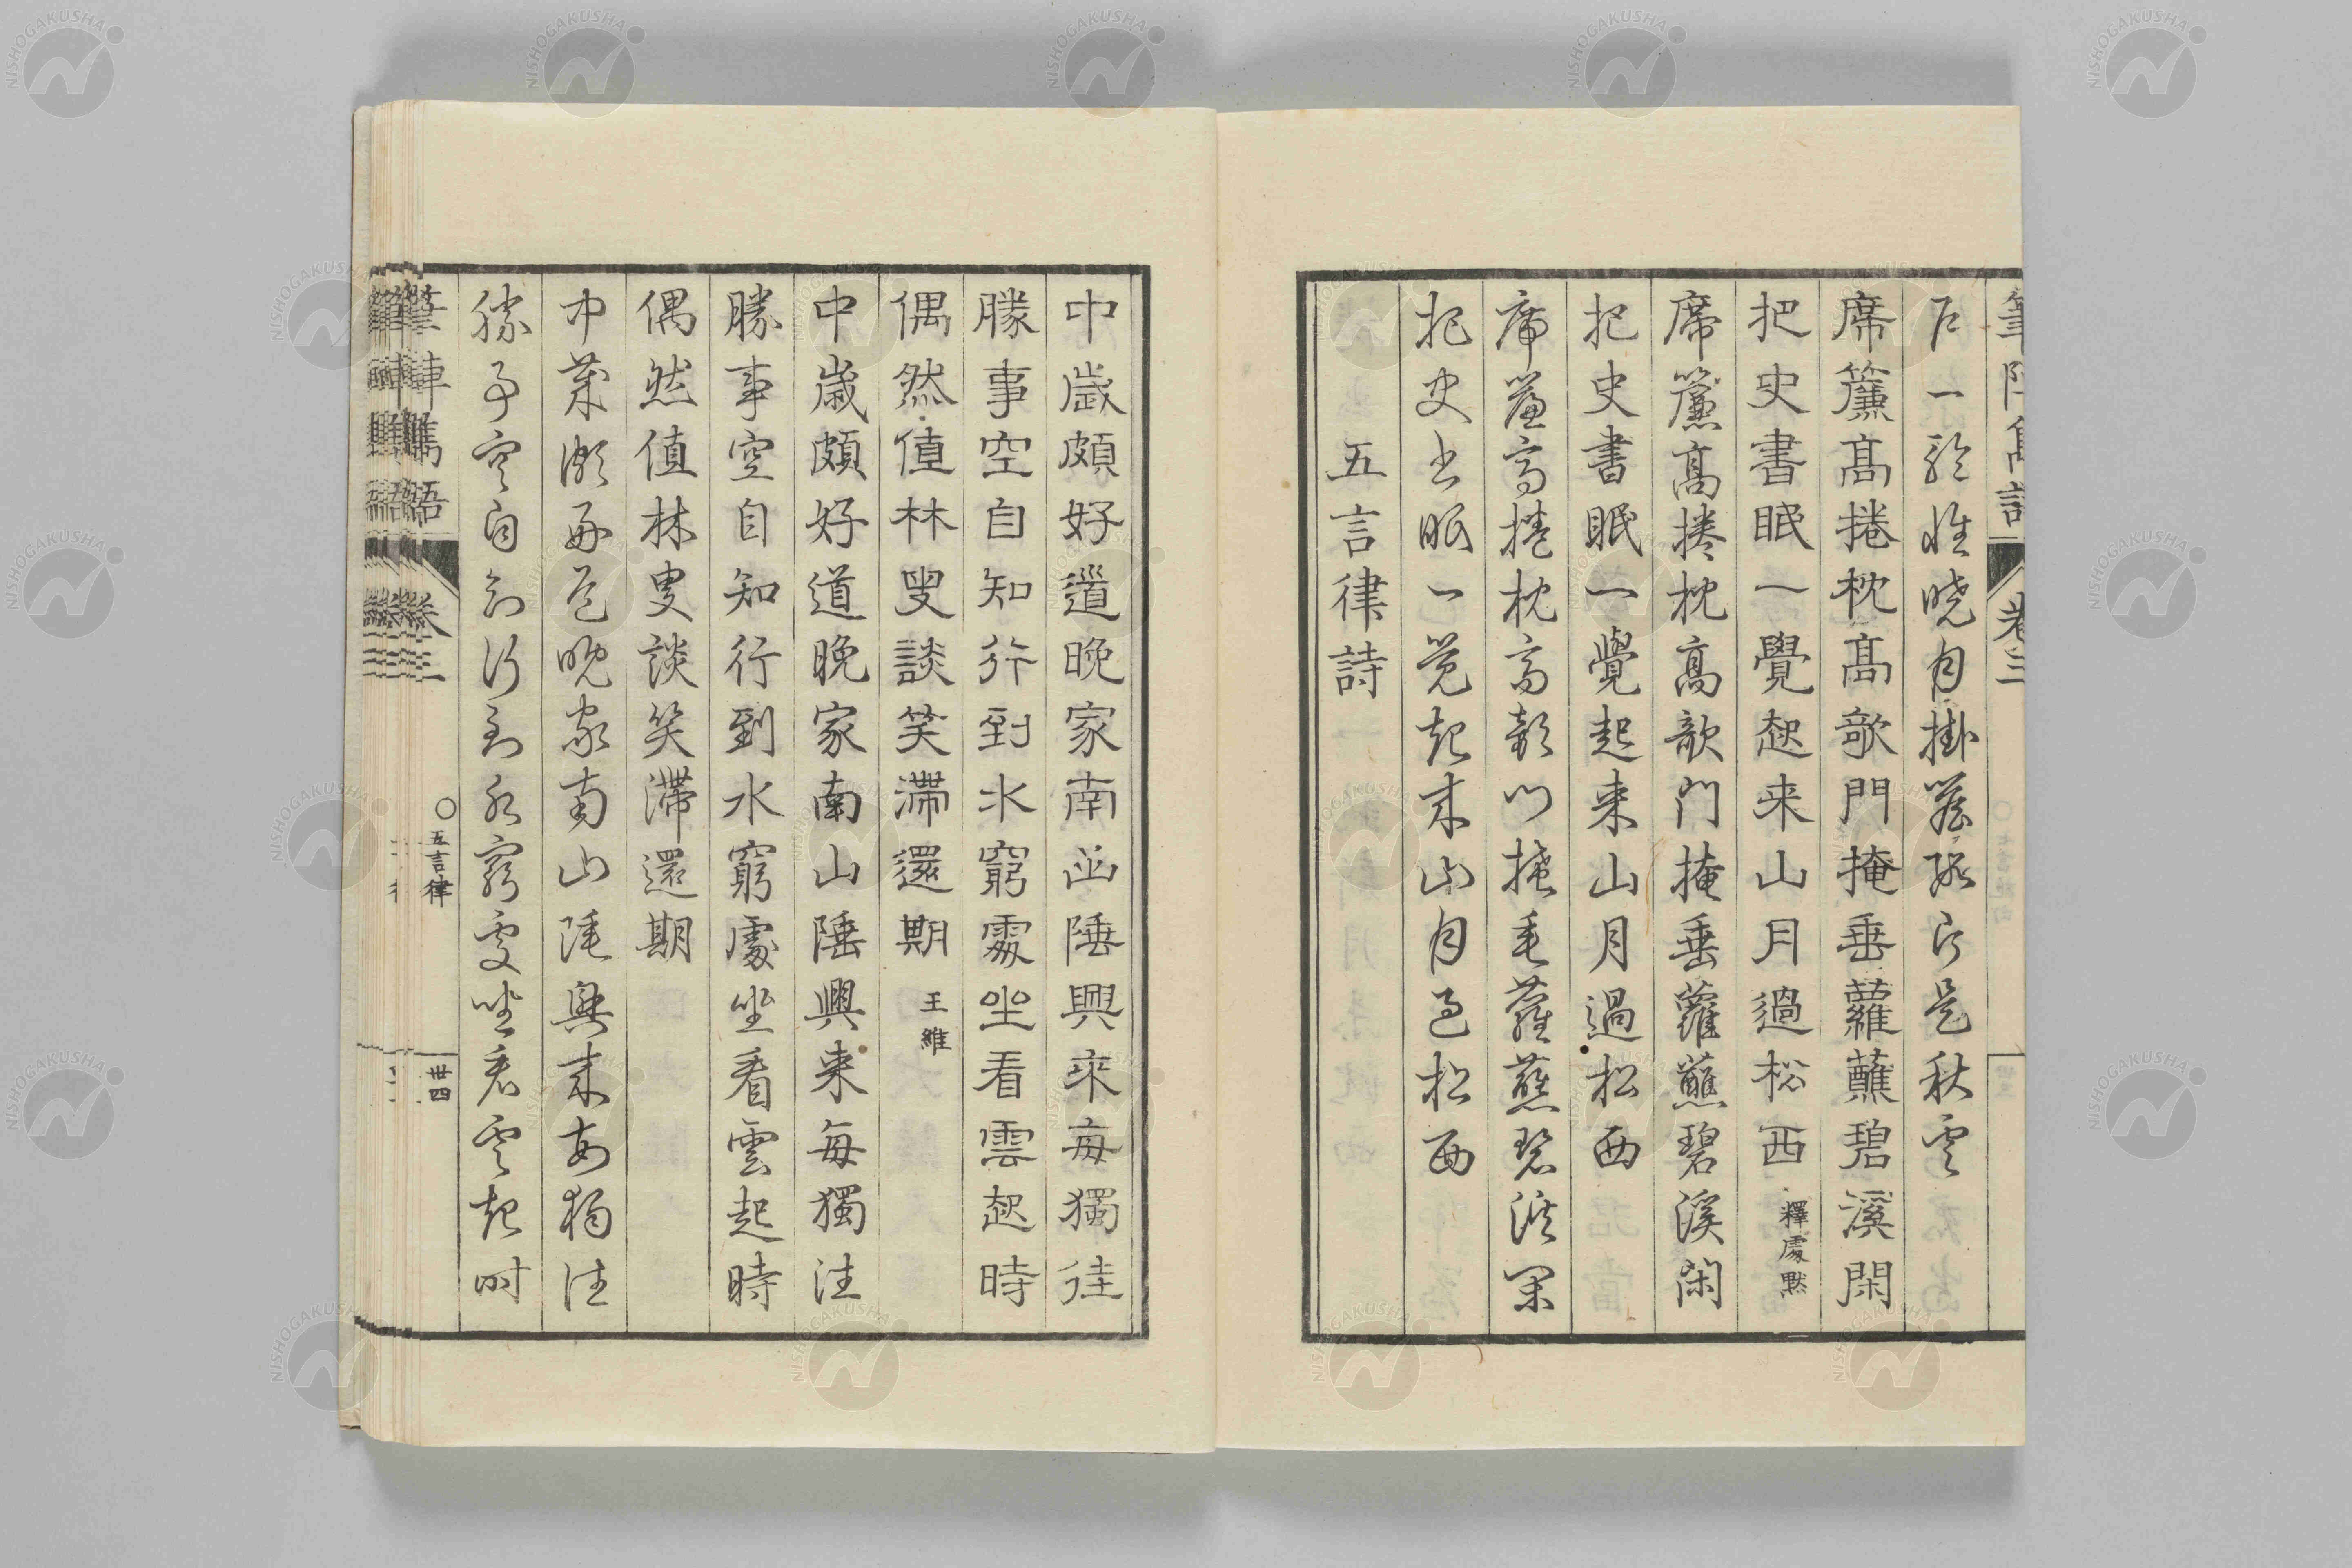 筆陣雋語 卷三
席簾高捲枕高欹門掩垂蘿蘸碧溪閑
把史書眠一覺起来山月過松西 釋處黙
席簾高捲枕高欹門掩垂蘿蘸碧溪閑
把史書眠一覺起来山月過松西
席簾高捲枕高欹門掩垂蘿蘸碧溪閑
把史書眠一覺起来山月過松西
五言律詩
中歲頗好道晚家南山陲興來每獨往
勝事空自知行到水窮處坐看雲起時
偶然值林叟談笑滯還期 王維
中歲頗好道晚家南山陲興来每獨往
勝事空自知行到水窮處坐看雲起時
偶然值林叟談笑滯還期
中歲頗好道晚家南山陲興来每獨往
勝事空自知行到水窮處坐看雲起時
筆陣雋語 卷三 ○五言律 卅四
NISHOGAKUSHA